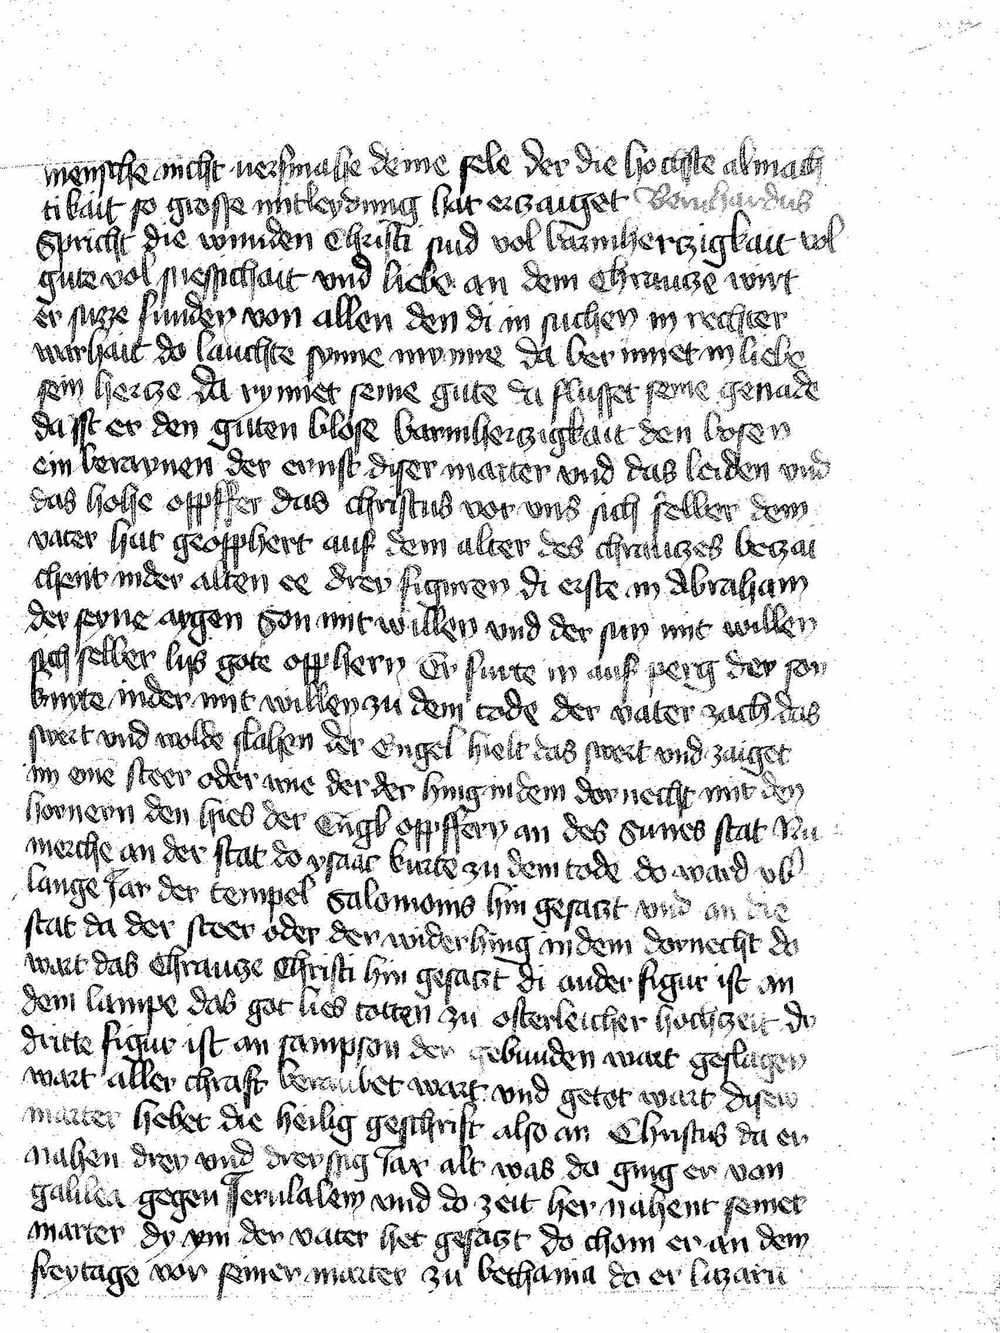 mensche nicht uersmahe deine sele der die hochste almach
tikait so grosse mitleydung hat erczaiget Bernhardus
Spricht die wunden Christi sind vol barmherczigkait vol
gute vol suessichait vnd liebe an dem Chrauze wirt
er suzze funden von allen den di in suchen in rechter
warhait do lauchte synne mynne da berinnet in liebe
sein hercze da rynnet seine gute da flusset seine genade
da ist er den guten blose barmherczigkait den bosen
ein beraynen der ernst diser marter vnd das leiden vnd
das hohe opffer das christus vor vns sich selber dem
vater hat geopphert auf dem alter des chrauczes beczai
chent in der alten ee drey figuren di erste in Abraham
der seyne aygen Son mit willen vnd der sun mit willen
sich selber lies gote opphern Er furte in auf perg der son
knyte nider mit willen zu dem tode der vater zach das
swert vnd wolde slahen der Engel hielt das swert vnd zaiget
im eine steer oder wie der der hing in dem dornecht mit den
hornern den hies der Engl opffern an des Sunes stat Nu
merche an der stat do ysaac knite zu dem tode do ward vb
lange Jar der tempel Salomonis hin gesatzt vnd an die
stat da der steer oder der wider hing in dem dornecht do
wart das Chrauze Christi hin gesatzt di ander figur ist an
dem lampe das got lies totten zu osterleicher hochzeit di
dritte figur ist an sampson der gebunden wart geslagen
wart aller chraft beraubet wart vnd getot wart disew
marter hebet die heilig geschrift also an Christus da er
nahen drey vnd dreyssig Jar alt was do ging er von
galilea gegen Jerusalem vnd do zeit her nahent seiner
marter dy ym der vater het gesatzt do chom er an dem
freytage vor seiner marter zu bethania do er lazaru